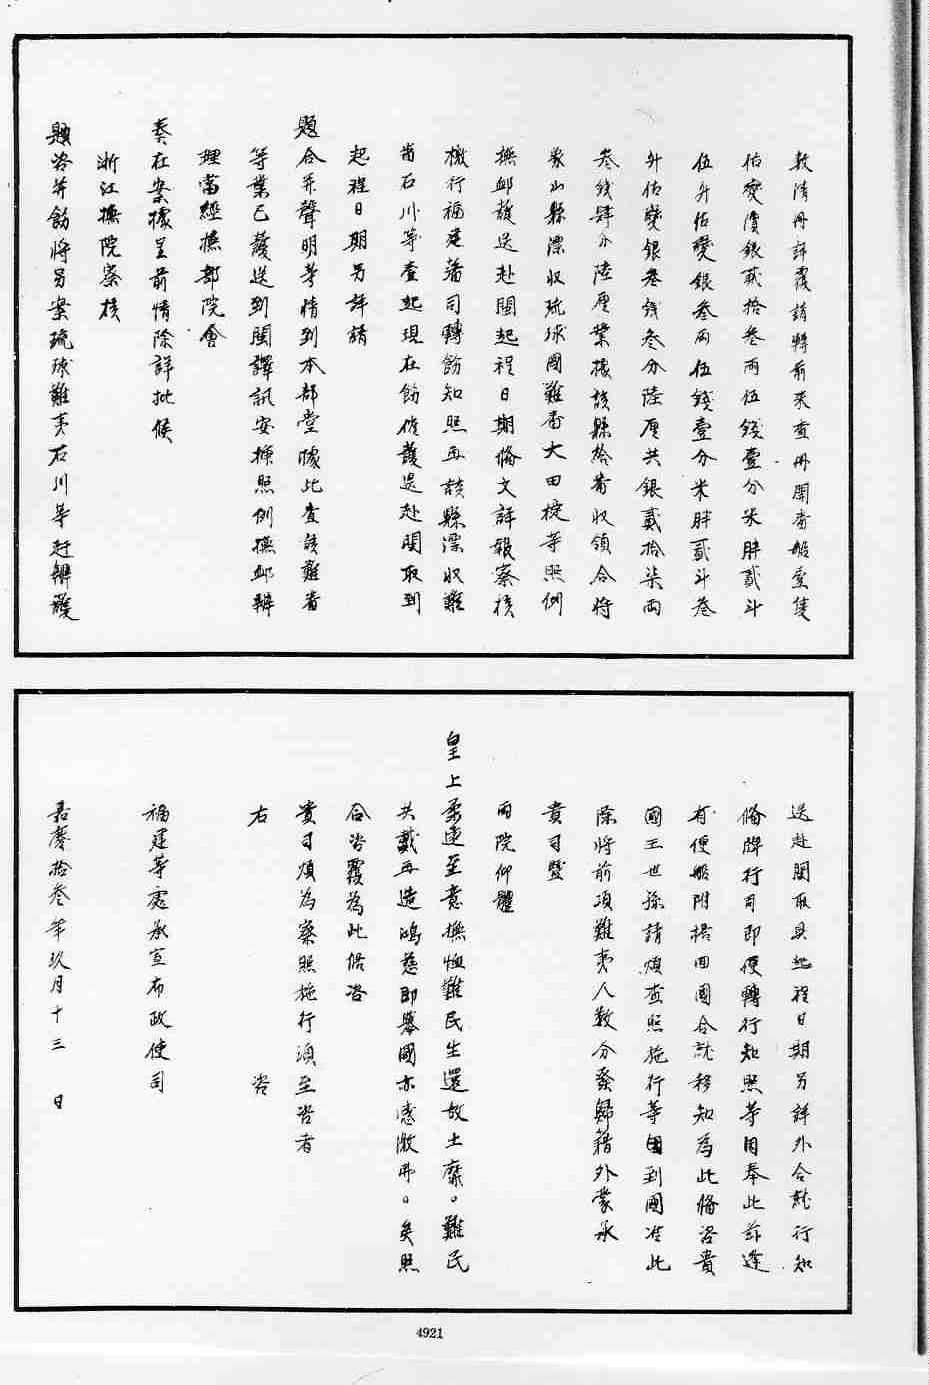 敦清冊詳覆請將前來查冊開番船壹隻
估變價銀貳拾叁兩伍錢壹分米肆貳斗
伍升估變銀叁兩伍錢壹分米肆貳斗叁
升估變銀叁錢叁分陸厘共銀貳拾柒兩
叁錢肆分陸厘業據該縣給番收領合將
象山縣漂收琉球國難番大田掟等照例
撫卹護送赴閩起程日期備文詳報察核
檄行福建藩司轉飭知照再該縣漂收難
番石川等查起現在飭催護送赴閩取到
起程日期另詳請
題合并聲明等情到本部堂據此查該難番
等業已護送到閩譯訊安插照例撫卹辦
理當經撫部院會
奏在案據呈前情除詳批候
浙江撫院察核
題咨并飭將另案琉球難夷石川等赶辦護
送赴閩取具起程日期另詳外合就行知
備牌行司即便轉行知照等因奉此茲逢
有便船附搭回國合就移知為此備咨貴
國王世孫請煩查照施行等因到國准此
除將前項難夷人數分發歸籍外蒙承
貴司暨
兩院仰體
皇上柔遠至意撫恤難民生還故土靡。難民
共戴再造鴻慈即舉國亦感激弗。矣照
合咨覆為此備咨
貴司煩為察照施行須至咨者
右 咨
福建等處承宣布政使司
嘉慶拾叁年玖月十三 日
4921